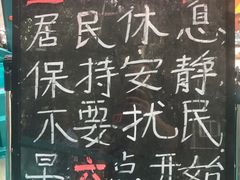 居民休息
保持安静
不要扰民
早六点开始